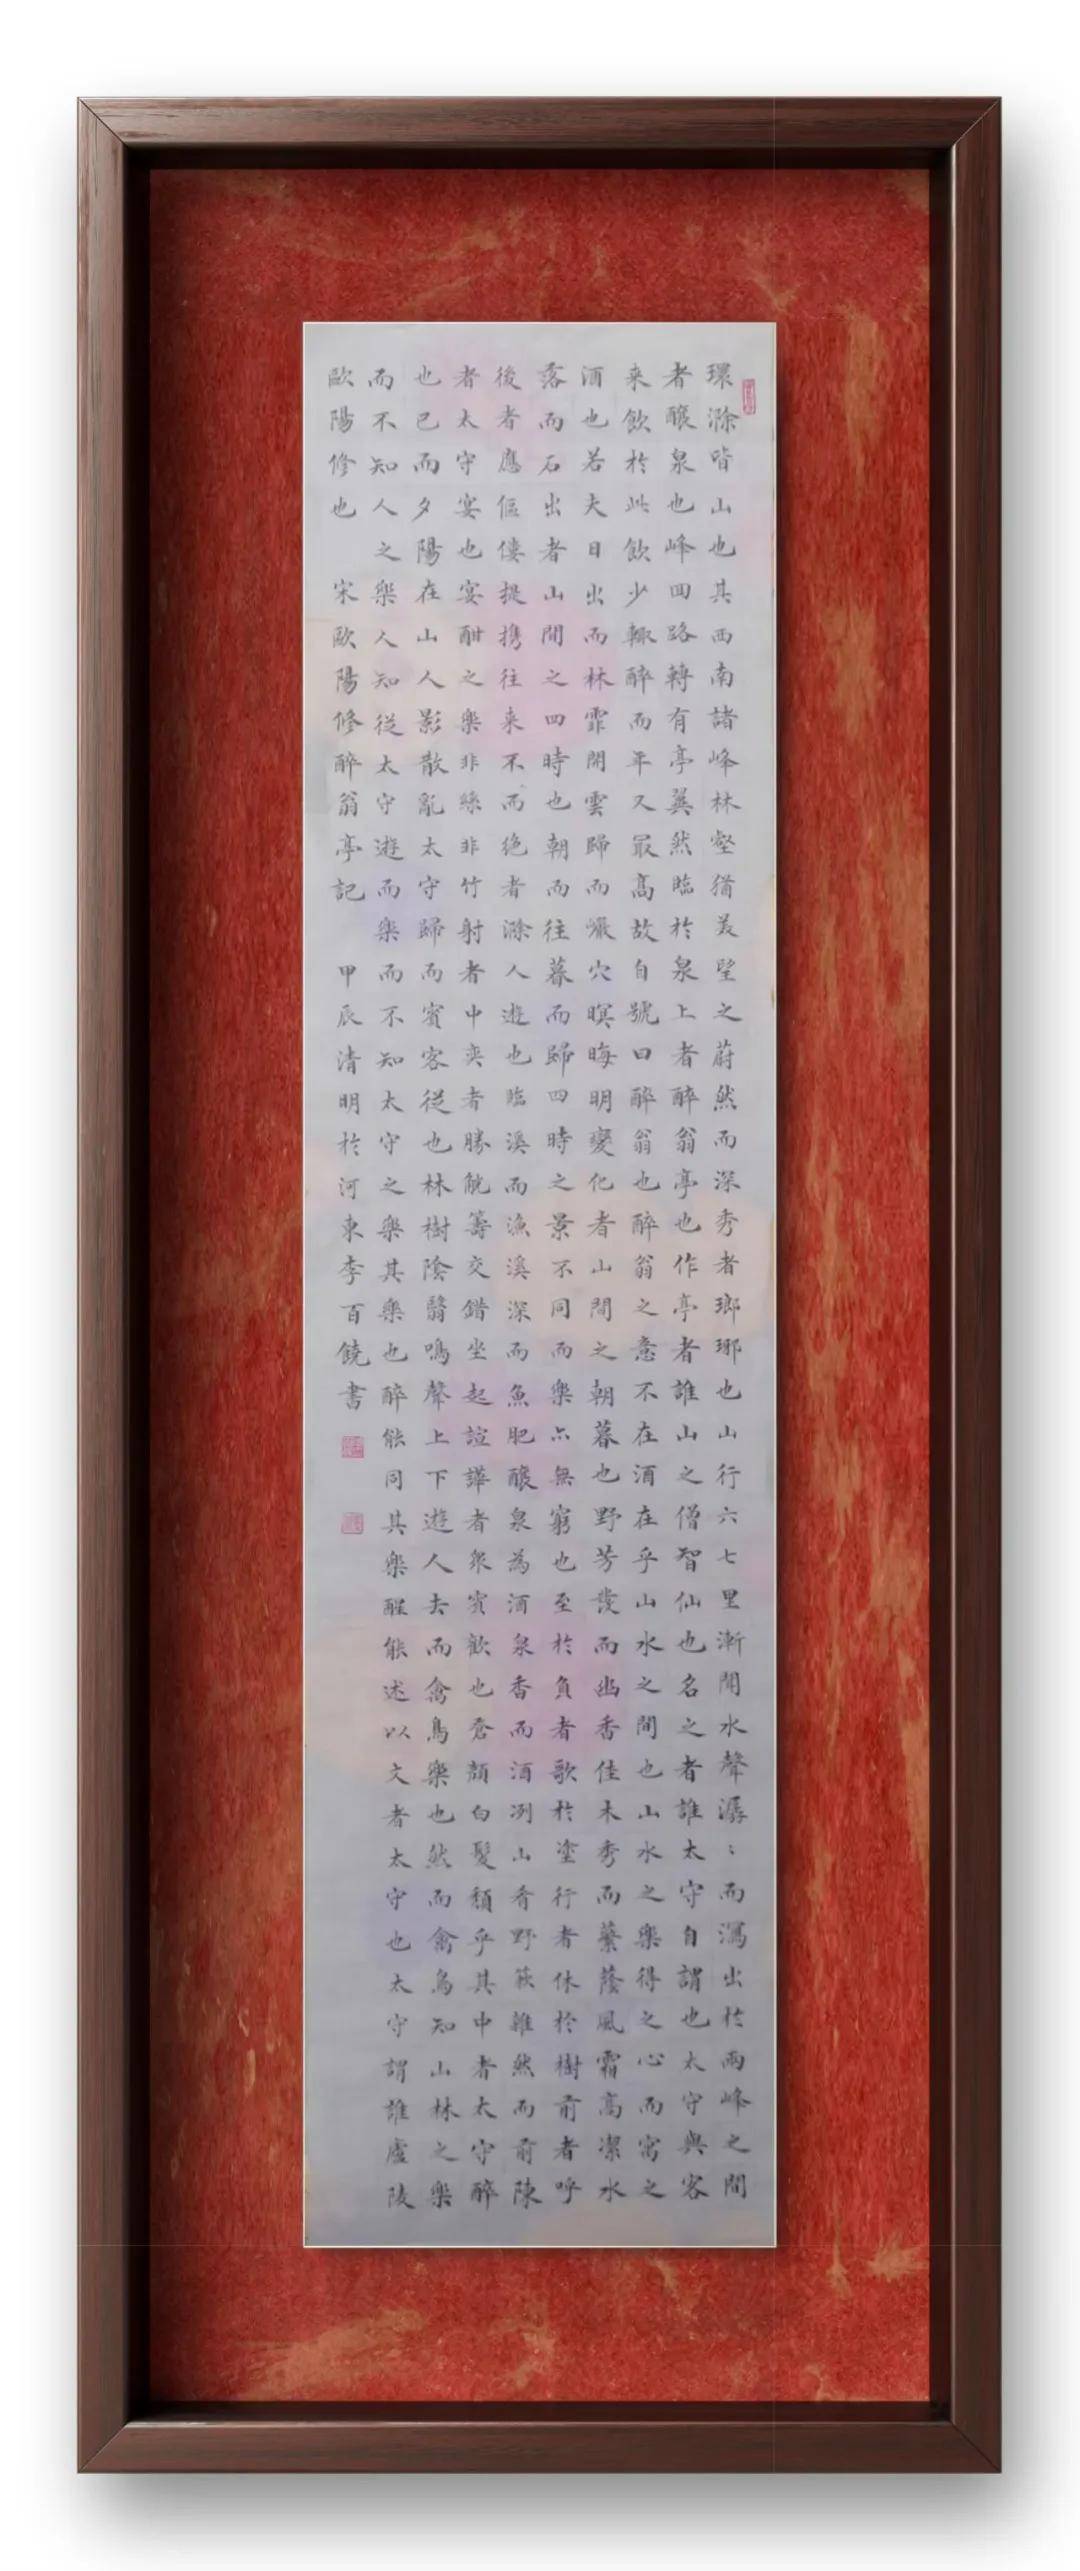 環滁皆山也其西南諸峰林壑猶美望之蔚然而深秀者瑯琊也山行六七里漸聞水聲潺〻而瀉出於兩峰之間
者釀泉也峰回路轉有亭翼然臨於泉上者醉翁亭也作亭者誰山之僧智仙也名之者誰太守自謂也太守與客
来飲於此飲少輒醉而年又最高故自號曰醉翁也醉翁之意不在酒在乎山水之間也山水之樂得之心而寓之
酒也若夫日出而林霏開雲歸而巖穴暝晦明變化者山間之朝暮也野芳發而幽香佳木秀而蘩蔭風霜高潔水
落而石出者山間之四時也朝而往暮而歸四時之景不同而樂亦無窮也至於負者歌於塗行者休於樹前者呼
後者應傴僂提攜往来不而絶者滁人遊也臨溪而漁溪深而魚肥釀泉為酒泉香而酒冽山肴野蔌雜然而前陳
者太守宴也宴酣之樂非絲非竹射者中奕者勝觥籌交錯坐起諠譁者眾賓歡也蒼顏白髮頹乎其中者太守醉
也已而夕陽在山人影散亂太守歸而賓客從也林樹陰翳鳴聲上下遊人去而禽鳥樂也然而禽鳥知山林之樂
而不知人之樂人知從太守遊而樂而不知太守之樂其樂也醉能同其樂醒能述以文者太守也太守謂誰廬陵
歐陽修也 宋歐陽修醉翁亭記 甲辰清明於河東李百饒書